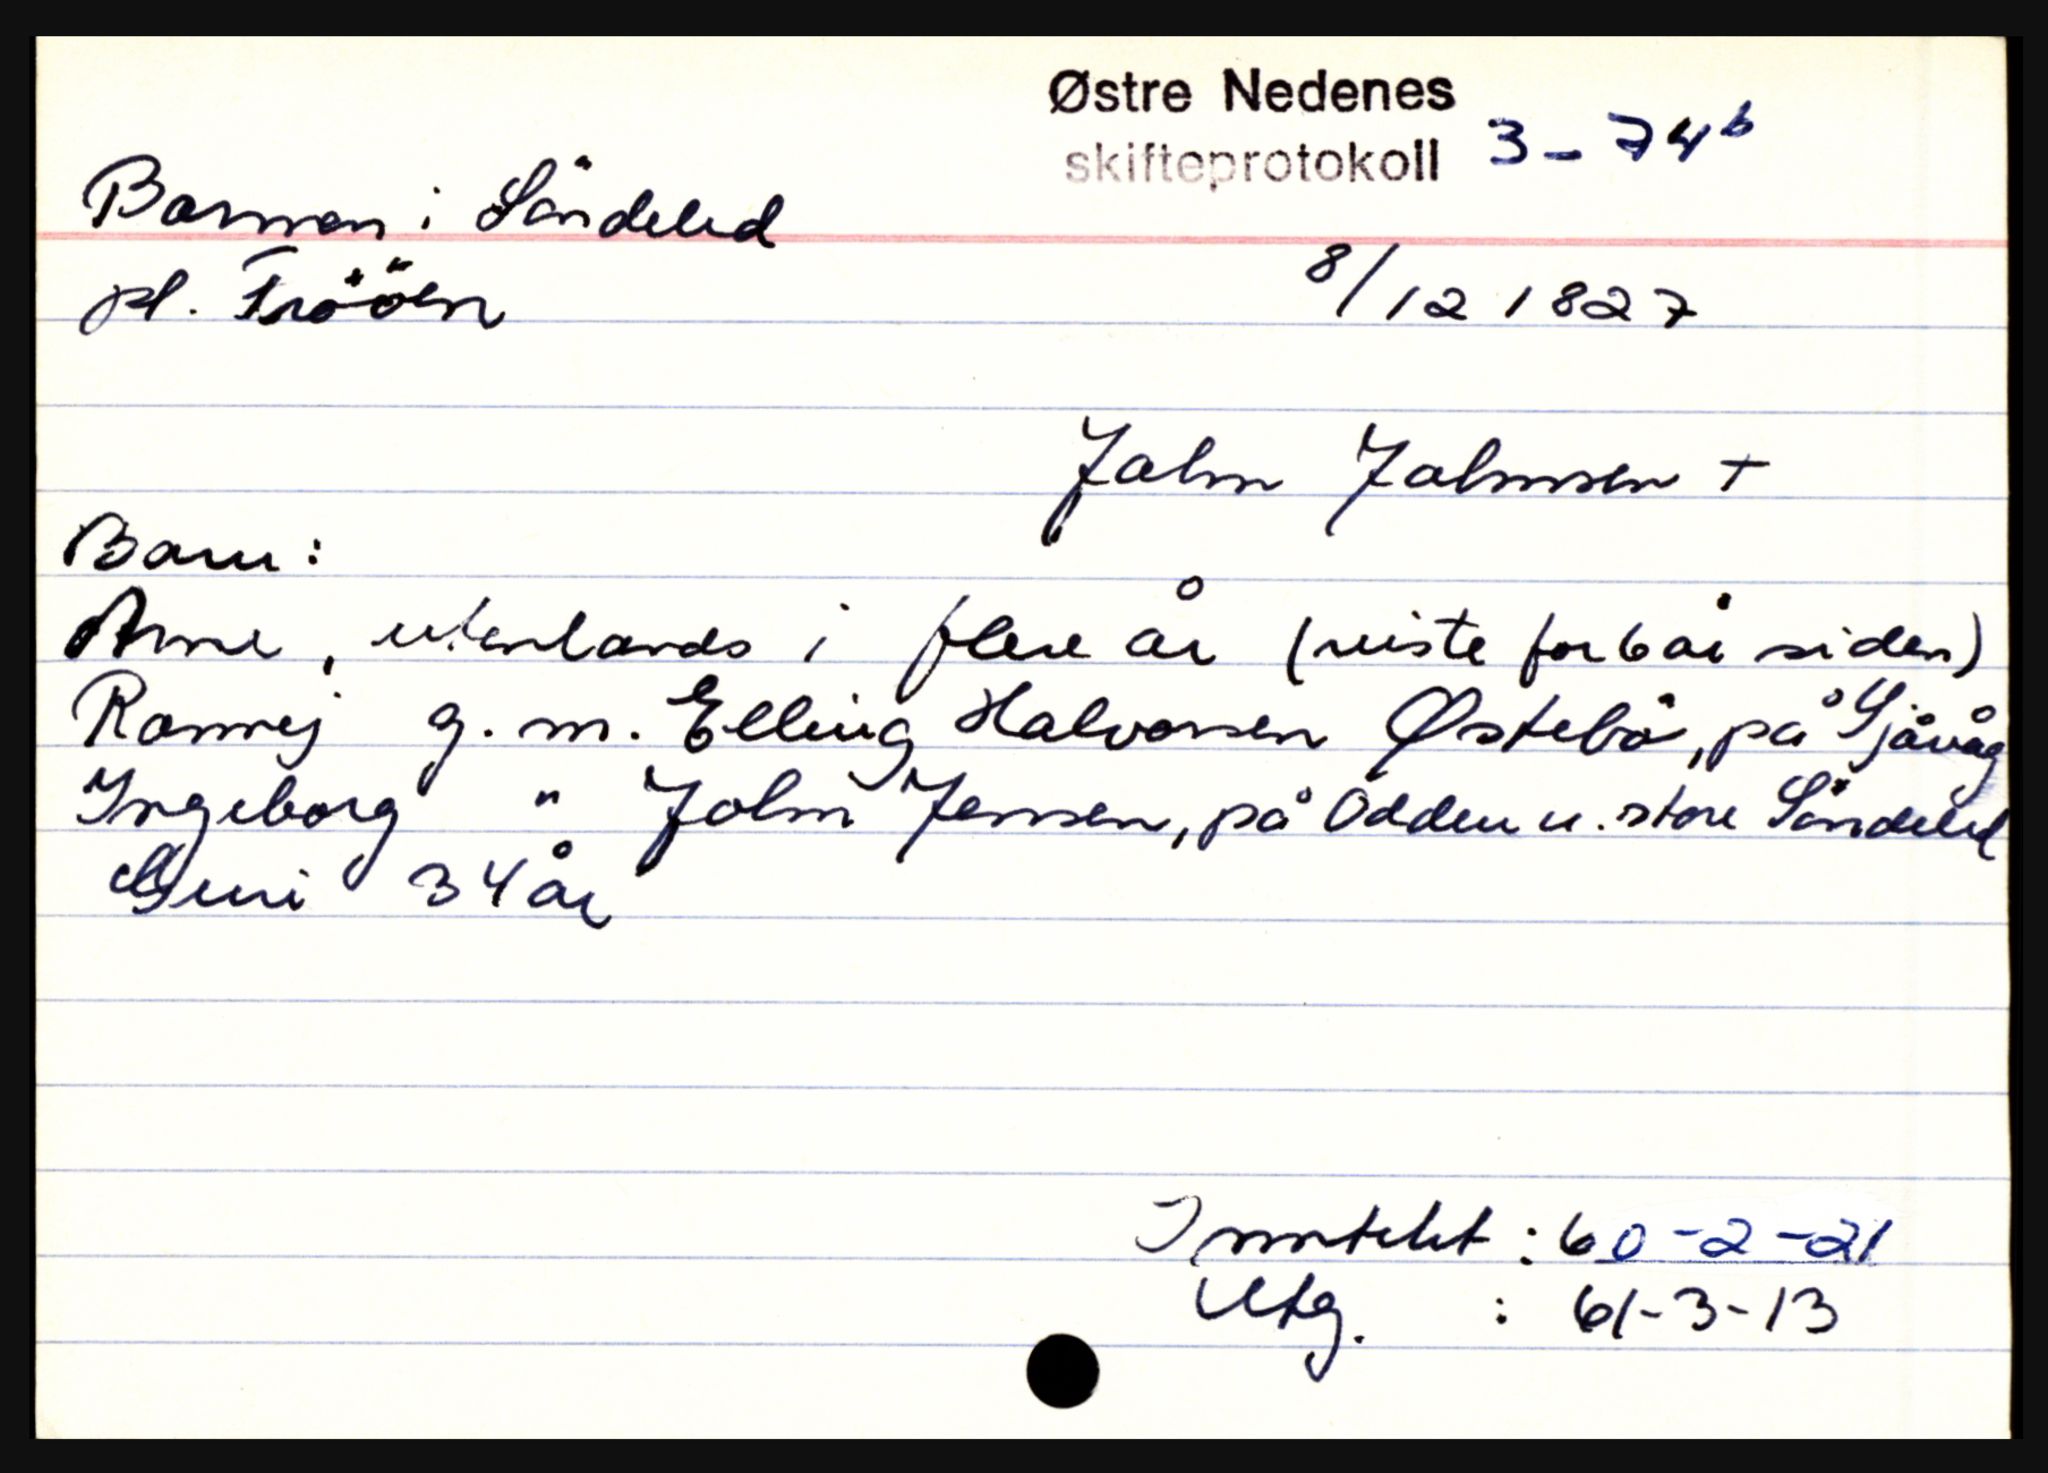 Østre Nedenes
skifteprotokoll 3-74b
Barmen i Söndeled
pl. Frööen
8/12 1827
John Johnsen +
Barn:
Arne, utenlands i flere år (reiste for 6 år siden)
Ronnej g.m. Elling Halvorsen Østebö, på Sjåvåg
Ingeborg " John Jensen, på Odden u. store Söndeled
Guri 34 år
Inntekt : 60-2-21
Utg. : 61-3-13